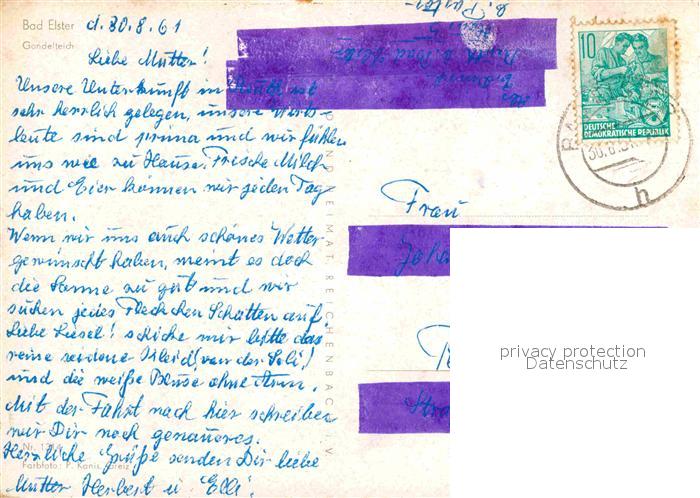 Bad Elster
Gondelteich
d. 30.8.61
Liebe Mutter!
Unsere Unterkunft in ist
sehr herrlich gelegen, unsere Wirts-
leute sind prima und wir fühlen
uns wie zu Hause. Frische Milch
und Eier können wir jeden Tag
haben.
Wenn wir uns auch schönes Wetter
gewünscht haben, meint es doch
die Sonne zu gut und wir
suchen jedes Fleckchen Schatten auf.
Liebe Liesel! schicke mir bitte das
reine seidene Kleid, (von der Loli)
und die weiße Bluse ohne Arm.
Mit der Fahrt nach hier schreiben
wir Dir noch genaueres.
Herzliche Grüße senden Dir liebe
Mutter Herbert u. Elli.
Farbfoto: P. Kanis, Greiz
REICHENBACH i. V.
10
DEUTSCHE
DEMOKRATISCHE REPUBLIK
30.8.
h
Frau
Joha
Str
privacy protection
Datenschutz